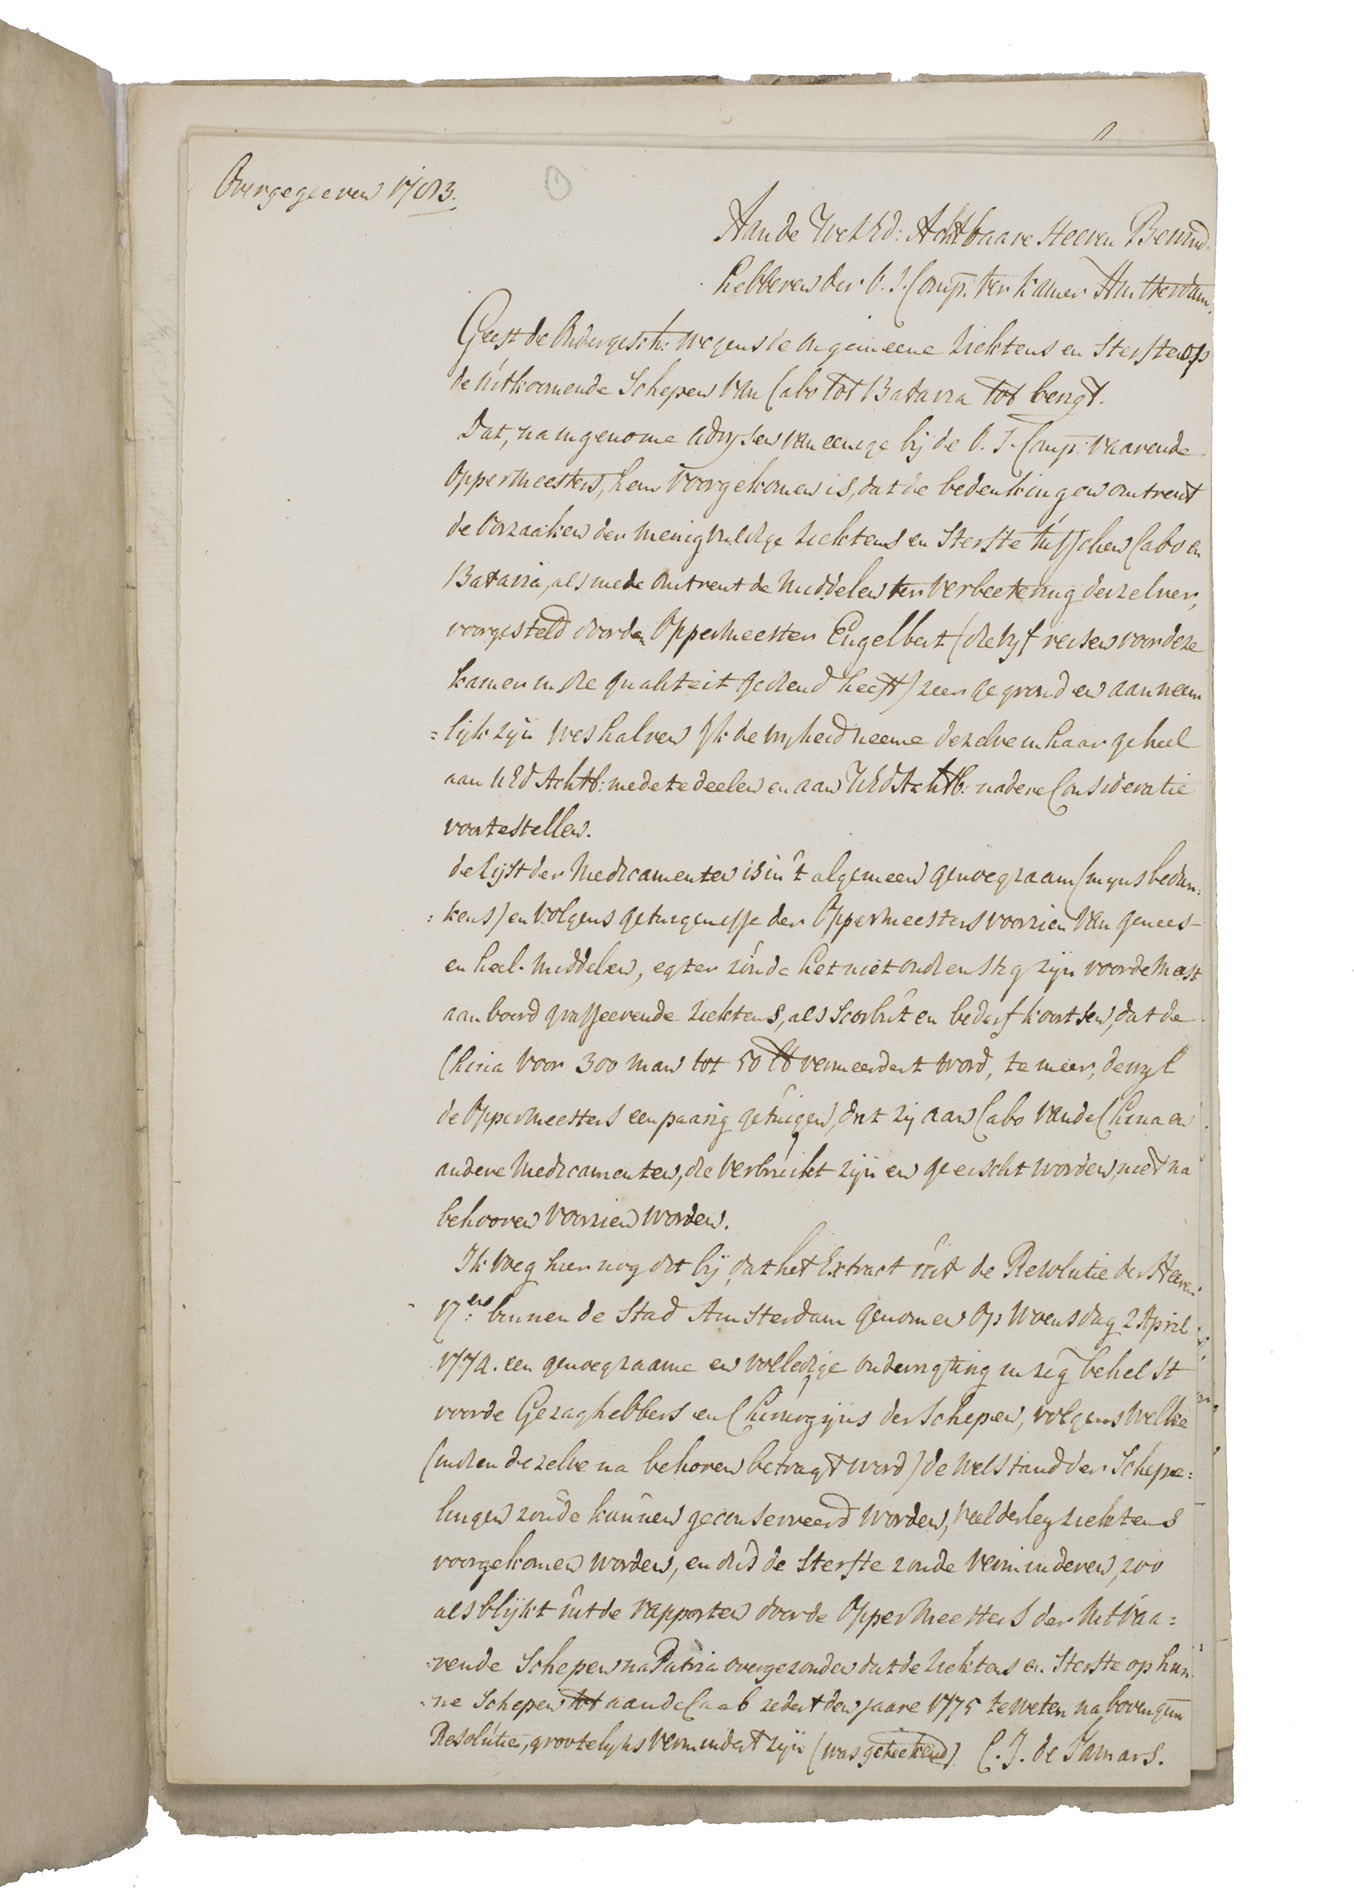 Overgegeeven 1783.
Aan de WelEd: Achtbaare Heeren Bewind-
hebberen der O. I. Comp. ter kamer Amsterdam.
Geeft de Ondergesch: wegens de ongemeene ziektens en Sterfte op
de uitkoomende Schepen van Cabo tot Batavia tot berigt.
Dat, na ingenome advysen van eenige bij de O. I. Comp: vaarende
Oppermeesters, hem voorgekomen is, dat de bedenkingen omtrent
de Oorzaaken der menigvuldige ziektens en Sterfte tusschen Cabo en
Batavia, als mede omtrent de Middelen ter verbeetering derzelver,
voorgesteld door den Oppermeester Engelbert (die vyf reisen voor deze
kamer in die qualiteit gediend heeft) zeer gegrond en aanneem
=lijk zijn weshalven Ik de vryheid neeme dezelve in haar geheel
aan UEd Achtb: mede te deelen en aan UEd Achtb: nadere Consideratie
voortestellen.
de Lijst der Medicamenten is in 't algemeen genoegzaam (myns bedun:
:kens) en volgens getuigenisse der Oppermeesters voorzien van genees-
en heel-middelen, egter zoude het niet ondienstig zijn voor de Meest
aan boord grasseerende ziektens, als Scorbut en bederf koortsen, dat de
China voor 300 man tot 50 lb vermeerdert word, te meer, dewyl
de Oppermeesters eenpaarig getuigen, dat zij aan Cabo van de China en
andere Medicamenten, die verbruikt zijn en geeischt worden, niet na
behooren voorzien worden.
Ik voeg hier nog dit bij, dat het Extract uit de Resolutie der Heeren
17en binnen de Stad Amsterdam genomen op Woensdag 2 April
1774. een genoegzaame en volledige onderrigting in zig behelst
voor de Gezaghebbers en Chirurgijns der Schepen, volgens welke
(indien dezelve na behoren betragt word) de welstand der Schepe=
lingen zoude kunnen geconserveerd worden, veelderley ziektens
voorgekomen worden, en dus de Sterfte zoude verminderen, zoo
als blijkt uit de rapporten door de Oppermeesters der uitvaa=
rende Schepen na Patria overgezonden dat de ziektens en Sterfte op hun
ne Schepen tot aan de Caab zedert den jaare 1775 te weten na bovengem
Resolutie, grootelyks vermindert zijn (was geteekend) C. J. de Famars.